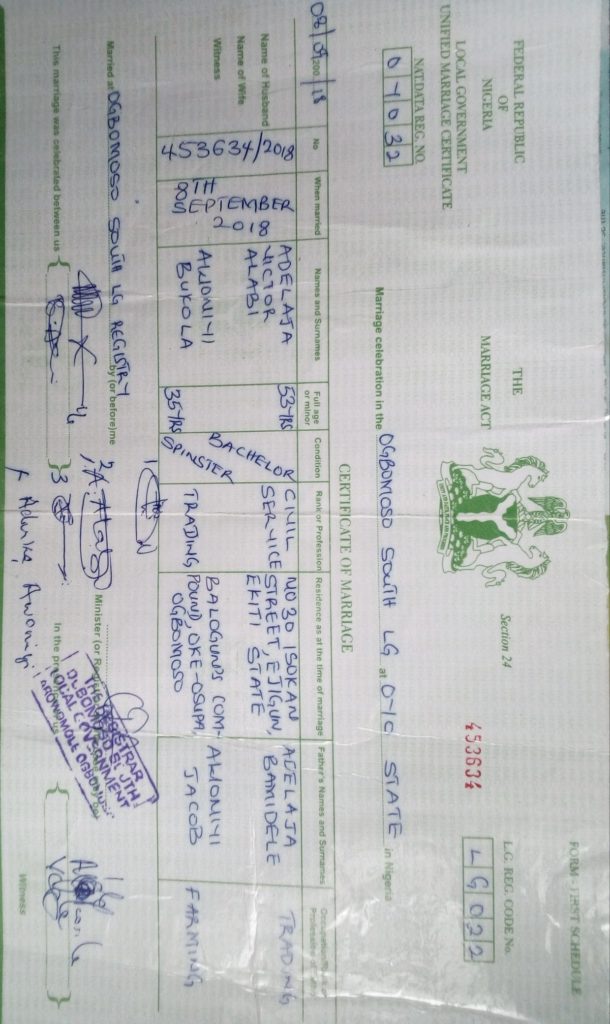 FORM - FIRST SCHEDULE
FEDERAL REPUBLIC
OF
NIGERIA
THE
MARRIAGE ACT
Section 24
L.G. REG. CODE No.
LG022
LOCAL GOVERNMENT
UNIFIED MARRIAGE CERTIFICATE
453634
NATDATA REG. NO.
04032
Marriage celebration in the OGBOMOSO SOUTH LG at OYO STATE in Nigeria
CERTIFICATE OF MARRIAGE
08/09/200 18
No
When married
Names and Surnames
Full age
or minor
Condition
Rank or Profession
Residence as at the time of marriage
Father's Names and Surnames
Name of Husband
Name of Wife
Witness
453634/2018
8TH
SEPTEMBER
2018
ADELAJA
VICTOR
ALABI
53YRS
BACHELOR
CIVIL
SERVICE
NO 30 ISOKAN
STREET, EJIGUN,
EKITI STATE
ADELAJA
BAMIDELE
TRADING
AWONIYI
BUKOLA
35YRS
SPINSTER
TRADING
BALOGUN'S COM-
POUND, OKE-OSUPA,
OGBOMOSO
AWONIYI
JACOB
FARMING
Married at OGBOMOSO SOUTH LG REGISTRY by (or before)me
Minister (or
REGISTRAR
OGBOMOSO SOUTH
LOCAL GOVERNMENT
AROWOMOLE OGBOMOSO
This marriage was celebrated between us
In the
Witness